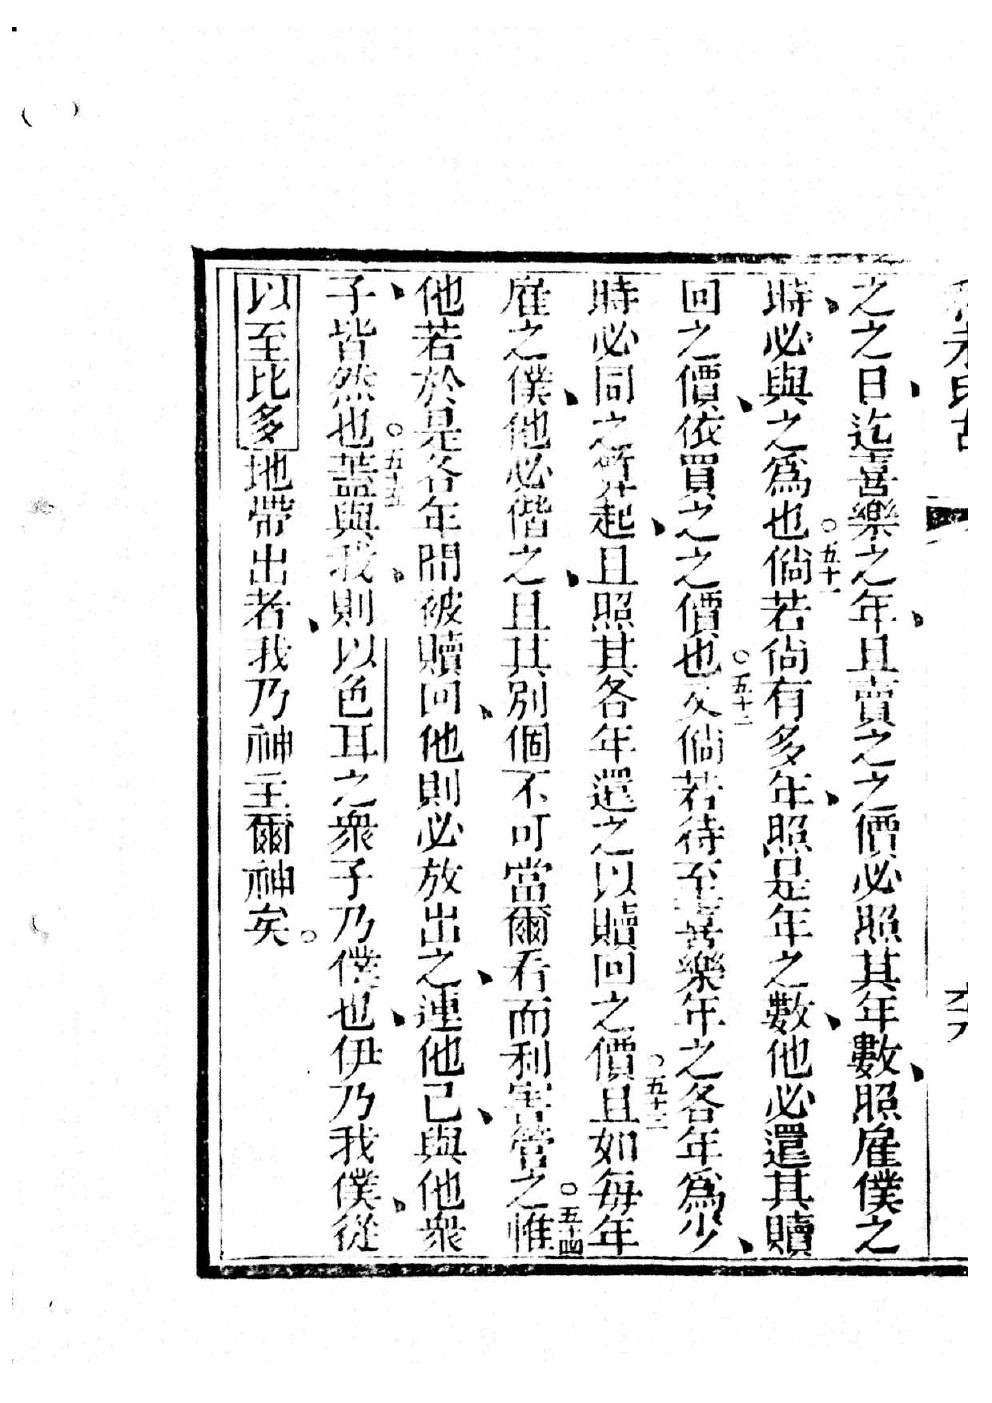 之之日、迄喜樂之年、且賣之之價、必照其年數、照雇僕之
時、必與之為也。○五十一倘若尙有多年、照是年之數、他必還其贖
回之價、依買之之價也。○五十二又倘若待至喜樂年之各年為少、
時必同之筭起、且照其各年還之以贖回之價、○五十三且如每年
雇之僕、他必偕之、且其別個不可當爾看而利害管之、○五十四惟
他若於是各年間被贖回、他則必放出之、連他己、與他衆
子、皆然也。○五十五蓋與我、則以色耳之衆子乃僕也、伊乃我僕、從
以至比多地帶出者、我乃神主爾神矣。